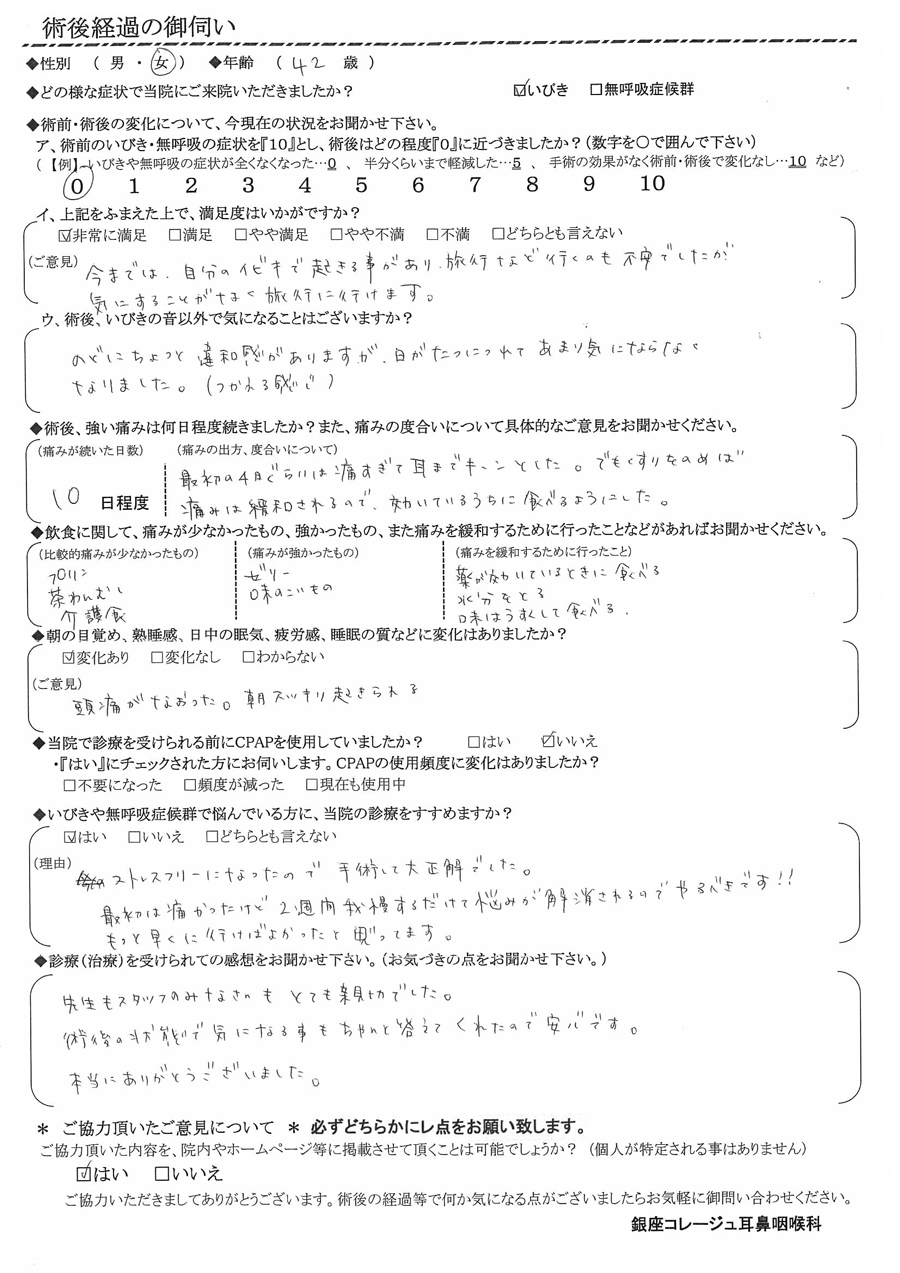 術後経過の御伺い
◆性別 ( 男 ・ 女 ) ◆年齢 ( 42 歳 )
◆どの様な症状で当院にご来院いただきましたか? ☑いびき □無呼吸症候群
◆術前・術後の変化について、今現在の状況をお聞かせ下さい。
ア、術前のいびき・無呼吸の症状を『10』とし、術後はどの程度『0』に近づきましたか?(数字を〇で囲んで下さい)
(【例】いびきや無呼吸の症状が全くなくなった…0 、 半分くらいまで軽減した…5 、 手術の効果がなく術前・術後で変化なし…10 など)
0 1 2 3 4 5 6 7 8 9 10
イ、上記をふまえた上で、満足度はいかがですか?
☑非常に満足 □満足 □やや満足 □やや不満 □不満 □どちらとも言えない
(ご意見)
今までは、自分のイビキで起きる事があり、旅行など行くのも不安でしたが
気にすることがなく旅行に行けます。
ウ、術後、いびきの音以外で気になることはございますか?
のどにちょっと違和感がありますが、日がたつにつれてあまり気にならなく
なりました。(つかえる感じ)
◆術後、強い痛みは何日程度続きましたか?また、痛みの度合いについて具体的なご意見をお聞かせください。
(痛みが続いた日数) (痛みの出方、度合いについて)
最初の4日ぐらいは痛すぎて耳までキーンとした。でもくすりをのめば
10 日程度 痛みは緩和されるので、効いているうちに食べるようにした。
◆飲食に関して、痛みが少なかったもの、強かったもの、また痛みを緩和するために行ったことなどがあればお聞かせください。
(比較的痛みが少なかったもの) (痛みが強かったもの) (痛みを緩和するために行ったこと)
プリン ゼリー 薬が効いているときに食べる
茶わんむし 味のこいもの 水分をとる
介護食 味はうすくして食べる.
◆朝の目覚め、熟睡感、日中の眠気、疲労感、睡眠の質などに変化はありましたか?
☑変化あり □変化なし □わからない
(ご意見)
頭痛がなおった。朝スッキリ起きられる
◆当院で診療を受けられる前にCPAPを使用していましたか? □はい ☑いいえ
・『はい』にチェックされた方にお伺いします。CPAPの使用頻度に変化はありましたか?
□不要になった □頻度が減った □現在も使用中
◆いびきや無呼吸症候群で悩んでいる方に、当院の診療をすすめますか?
☑はい □いいえ □どちらとも言えない
(理由)
ストレスフリーになったので 手術して大正解でした。
最初は痛かったけど2週間我慢するだけで悩みが解消されるのでやるべきです!!
もっと早くに行けばよかったと思ってます。
◆診療(治療)を受けられての感想をお聞かせ下さい。(お気づきの点をお聞かせ下さい。)
先生もスタッフのみなさんも とても親切でした。
術後の状態で気になる事もちゃんと答えてくれたので安心です。
本当にありがとうございました。
* ご協力頂いたご意見について * 必ずどちらかにレ点をお願い致します。
ご協力頂いた内容を、院内やホームページ等に掲載させて頂くことは可能でしょうか? (個人が特定される事はありません)
☑はい □いいえ
ご協力いただきましてありがとうございます。術後の経過等で何か気になる点がございましたらお気軽に御問い合わせください。
銀座コレージュ耳鼻咽喉科